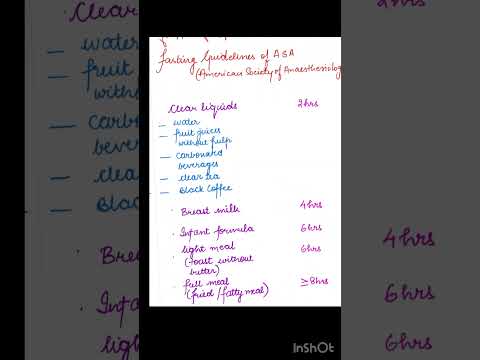 Fasting Guidelines of ASA
(American Society of Anaesthesiolog
Clear liquids 2hrs
— water
— fruit juices
without pulp
— carbonated
beverages
— clear tea
— Black Coffee
· Breast milk 4hrs
· Infant formula 6hrs
· light meal 6hrs
(toast without
butter)
· full meal ≥8hrs
(fried/fatty meal)
2hrs
— water
— fruit
witho
— Carbo
bevera
— clea
— Blac
· Brea 4hrs
· Infan 6hrs
ligh 6hrs
InShOt